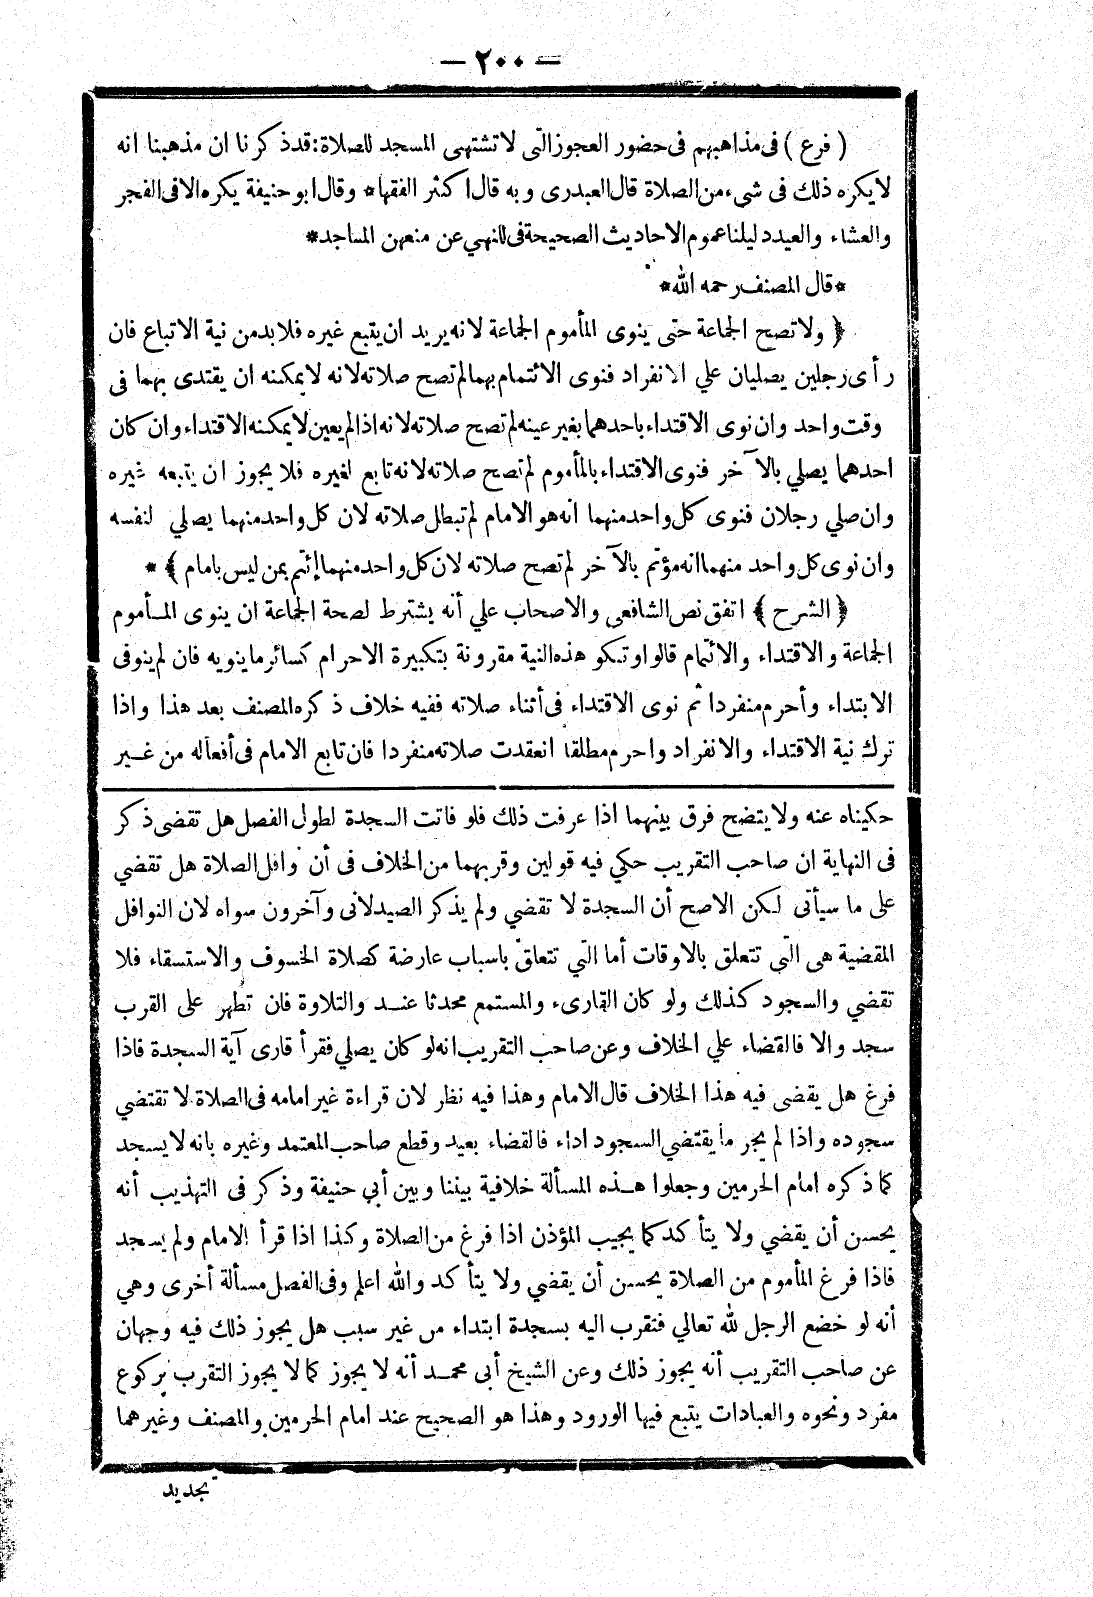 — ٢٠٠ —
( فرع ) فى مذاهبهم فى حضور العجوز التى لا تشتهى المسجد للصلاة : قد ذكرنا ان مذهبنا انه
لا يكره ذلك فى شىء من الصلاة قال العبدرى وبه قال اكثر الفقهاء * وقال ابو حنيفة يكره الا فى الفجر
والعشاء والعيد دليلنا عموم الاحاديث الصحيحة فى النهي عن منعهن المساجد *
* قال المصنف رحمه الله *
﴿ ولا تصح الجماعة حتى ينوى المأموم الجماعة لانه يريد ان يتبع غيره فلا بد من نية الاتباع فان
رأى رجلين يصليان علي الانفراد فنوى الائتمام بهما لم تصح صلاته لانه لا يمكنه ان يقتدى بهما فى
وقت واحد وان نوى الاقتداء باحدهما بغير عينه لم تصح صلاته لانه اذا لم يعين لا يمكنه الاقتداء وان كان
احدهما يصلي بالآخر فنوى الاقتداء بالمأموم لم تصح صلاته لانه تابع لغيره فلا يجوز ان يتبعه غيره
وان صلي رجلان فنوى كل واحد منهما انه هو الامام لم تبطل صلاته لان كل واحد منهما يصلي لنفسه
وان نوى كل واحد منهما انه مؤتم بالآخر لم تصح صلاته لان كل واحد منهما إئتم بمن ليس بامام ﴾ *
﴿ الشرح ﴾ اتفق نص الشافعى والاصحاب علي أنه يشترط لصحة الجماعة ان ينوى المأموم
الجماعة والاقتداء والائتمام قالوا وتكو هذه النية مقرونة بتكبيرة الاحرام كسائر ما ينويه فان لم ينو فى
الابتداء وأحرم منفردا ثم نوى الاقتداء فى أثناء صلاته ففيه خلاف ذكره المصنف بعد هذا واذا
ترك نية الاقتداء والانفراد واحرم مطلقا انعقدت صلاته منفردا فان تابع الامام فى أفعاله من غير
حكيناه عنه ولا يتضح فرق بينهما اذا عرفت ذلك فلو فاتت السجدة لطول الفصل هل تقضى ذكر
فى النهاية ان صاحب التقريب حكي فيه قولين وقربهما من الخلاف فى أن وافل الصلاة هل تقضي
على ما سيأتى لكن الاصح أن السجدة لا تقضي ولم يذكر الصيدلانى وآخرون سواه لان النوافل
المقضية هى التى تتعلق بالاوقات أما التي تتعلق باسباب عارضة كصلاة الخسوف والاستسقاء فلا
تقضي والسجود كذلك ولو كان القارىء والمستمع محدثا عند والتلاوة فان تطهر على القرب
سجد والا فالقضاء علي الخلاف وعن صاحب التقريب انه لو كان يصلي فقرأ قارى آية السجدة فاذا
فرغ هل يقضى فيه هذا الخلاف قال الامام وهذا فيه نظر لان قراءة غير امامه فى الصلاة لا تقتضي
سجوده واذا لم يجر ما يقتضي السجود اداء فالقضاء بعيد وقطع صاحب المعتمد وغيره بانه لا يسجد
كما ذكره امام الحرمين وجعلوا هذه المسألة خلافية بيننا وبين أبي حنيفة وذكر فى التهذيب أنه
يحسن أن يقضي ولا يتأكد كما يجيب المؤذن اذا فرغ من الصلاة وكذا اذا قرأ الامام ولم يسجد
فاذا فرغ المأموم من الصلاة يحسن أن يقضي ولا يتأكد والله اعلم وفى الفصل مسألة أخرى وهي
أنه لو خضع الرجل لله تعالي فتقرب اليه بسجدة ابتداء من غير سبب هل يجوز ذلك فيه وجهان
عن صاحب التقريب أنه يجوز ذلك وعن الشيخ أبى محمد أنه لا يجوز كما لا يجوز التقرب بركوع
مفرد ونحوه والعبادات يتبع فيها الورود وهذا هو الصحيح عند امام الحرمين والمصنف وغيرهما
بجديد